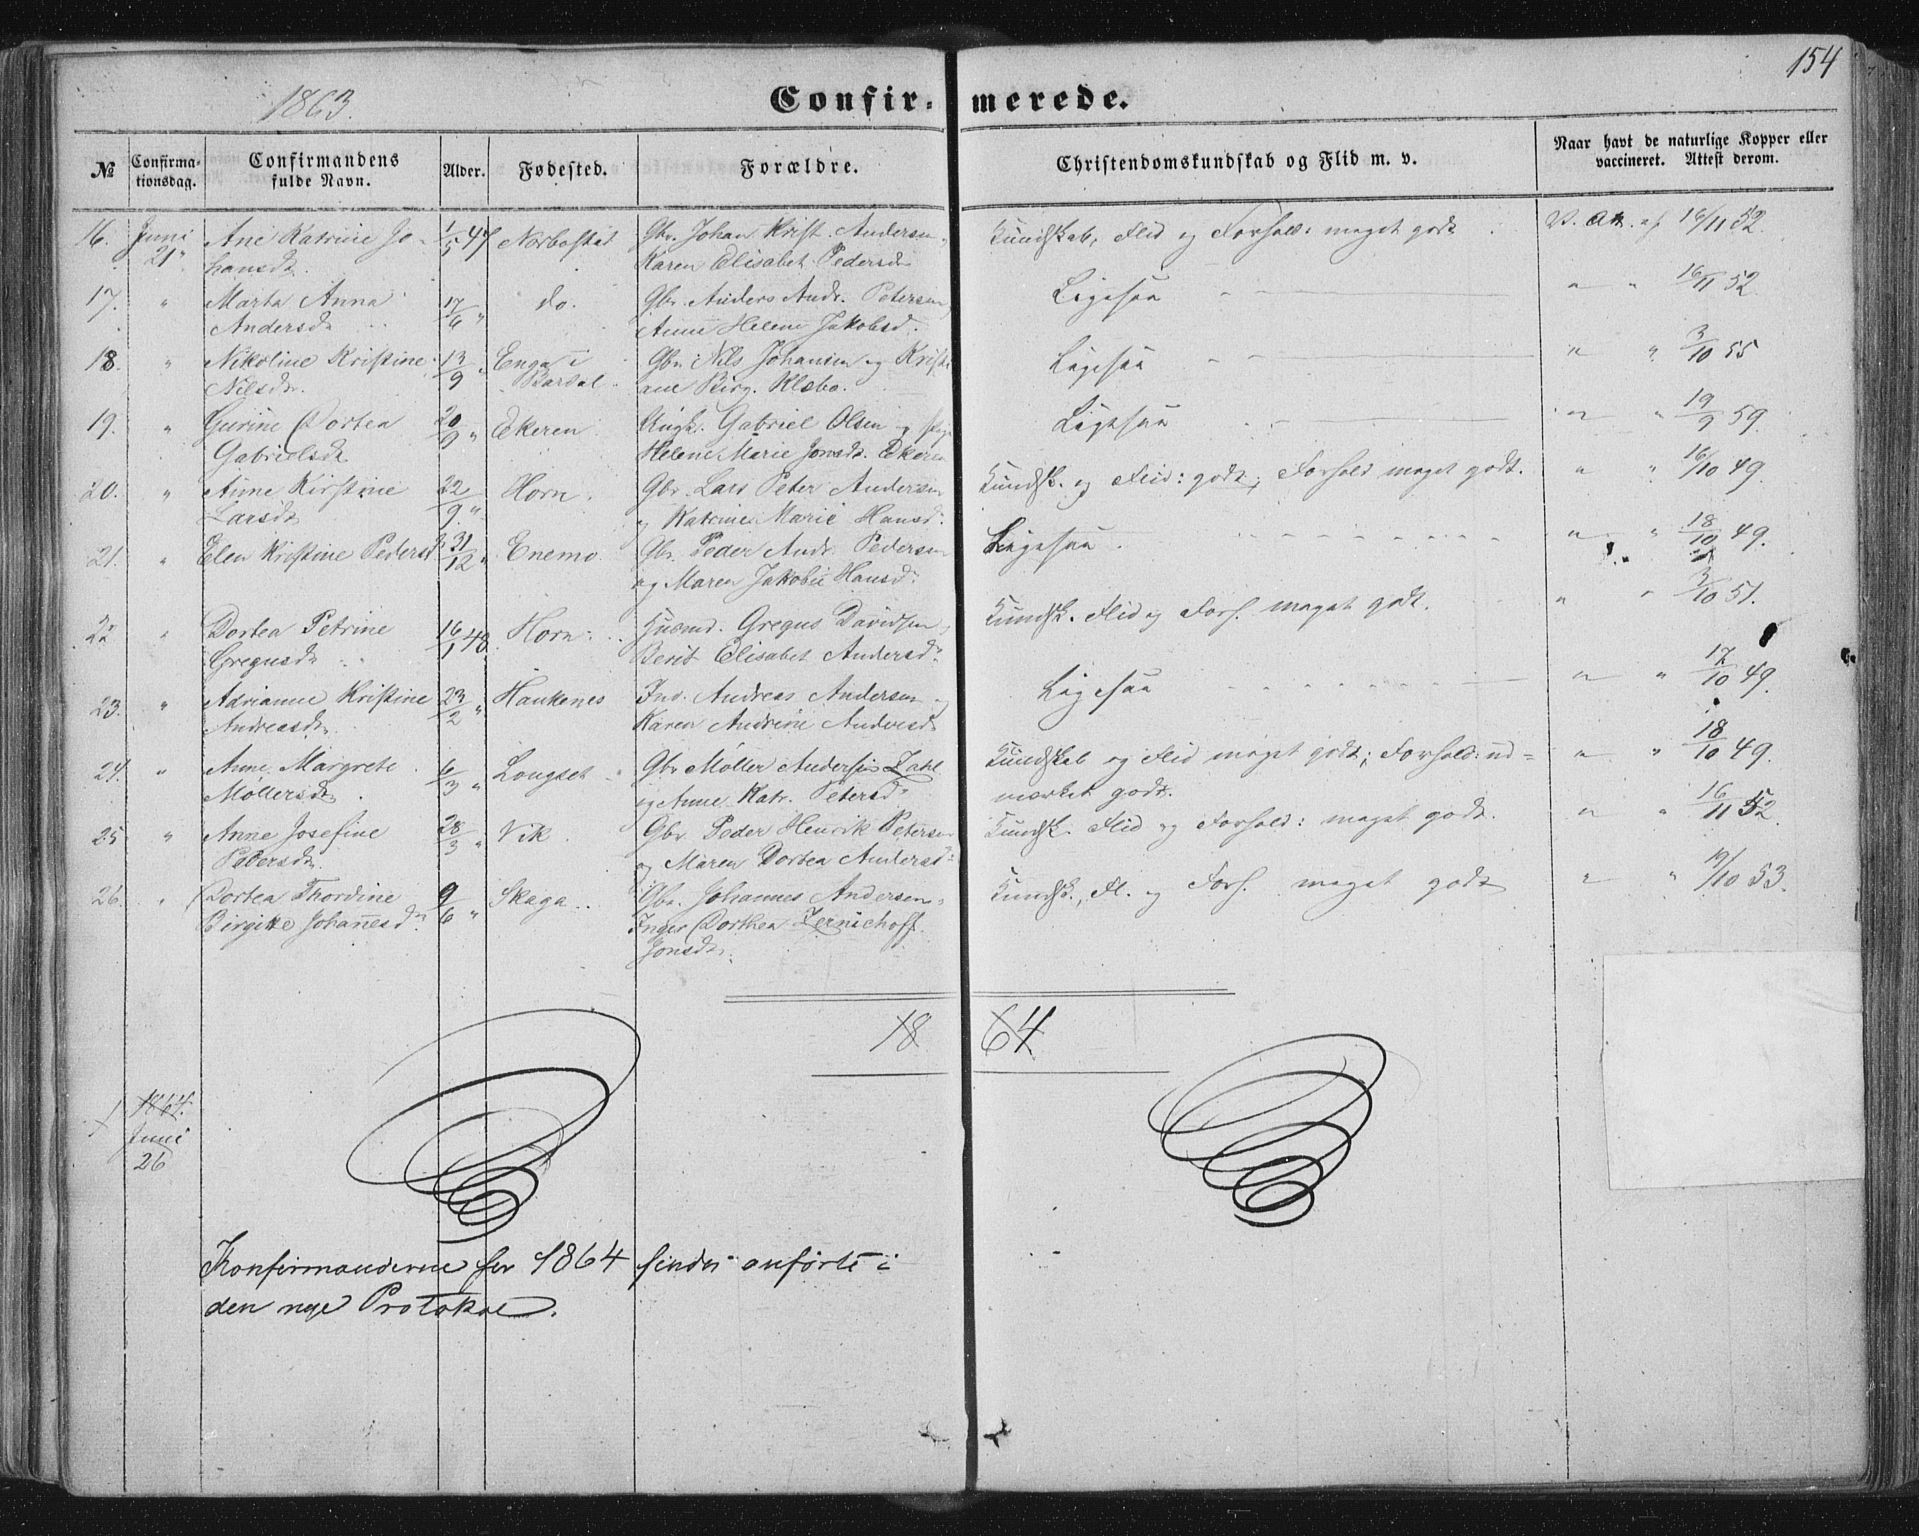 154
1863.
Confir- merede.
№ Confirma-tionsdag. Confirmandens fulde Navn. Alder. Fødested. Forældre. Christendomskundskab og Flid m. v. Naar havt de naturlige Kopper eller vaccineret. Attest derom.
16. Juni 21 Ane Katrine Jo- 1/5 47 Gbr. Johan Krist. Andersen Kundskab, Flid og Forhold: meget godt V. Att. af 16/11 52.
hansdr. Karen Elisabet Pedersdr
17. " Marta Anna 17/6 " do. Gbr. Anders Andr. Petersen, Ligesaa " " 16/11 52
Andersdr Anne Helene Jakobsd.
18. " Nikoline Kristine 13/9 " Enga i Gbr. Nils Johansen og Kristi Ligesaa " " 3/10 55
Nilsdr. Bardal ane Birg. Klæbo.
19. " Gurine Dortea 20/9 " Ekeren Ungk. Gabriel Olsen og Ligesaa " " 19/9 59.
Gabrielsdr Helene Marie Jonsdr. Ekeren
20. " Anne Kirstine 22/9 " Horn. Gbr. Lars Peter Andersen Kundsk. og Flid: godt, Forhold meget godt. " " 16/10 49.
Larsdr og Katrine Marie Hansd.
21. " Elen Kristine Pedersd 31/12 " Enemo Gbr. Peder Andr. Pedersen Ligesaa. " " 18/10 49.
og Maren Jakobie Hansdr.
22 " Dortea Petrine 16/1 48 Horn. Husmd. Gregus Davidsen, Kundsk. Flid og Forh. meget godt. " " 3/10 51.
Gregusdr Berit Elisabet Andersdr.
23. " Adrianne Kristine 23/2 " Haukenes Ind. Andreas Andersen Ligesaa " " 17/10 49.
Andreasdr. Karen Andrine Andersdr
24. " Anne Margrete 6/3 " Longset Gbr Møller Andersen Zahl Kundskab og Flid meget godt; Forhold: ud- " " 18/10 49.
Møllersdr og Anne Katr. Petersdr mærket godt.
25 " Anne Josefine 28/3 " Vik. Gbr Peder Henrik Petersen Kundsk. Flid og Forhold: meget godt. " " 16/11 52.
Pedersdr og Maren Dortea Andersdr.
26. " Dortea Thordine 9/6 " Skaga Gbr. Johannes Andersen, Kundsk., Fl. og Forh. meget godt " " 19/10 53.
Birgitte Johannesdr Inger Dorthea Zernichoff
Jonsdr.
18 64
1 1864.
Juni
26
Konfirmanderne for 1864 findes anførte i
den nye Protokol.